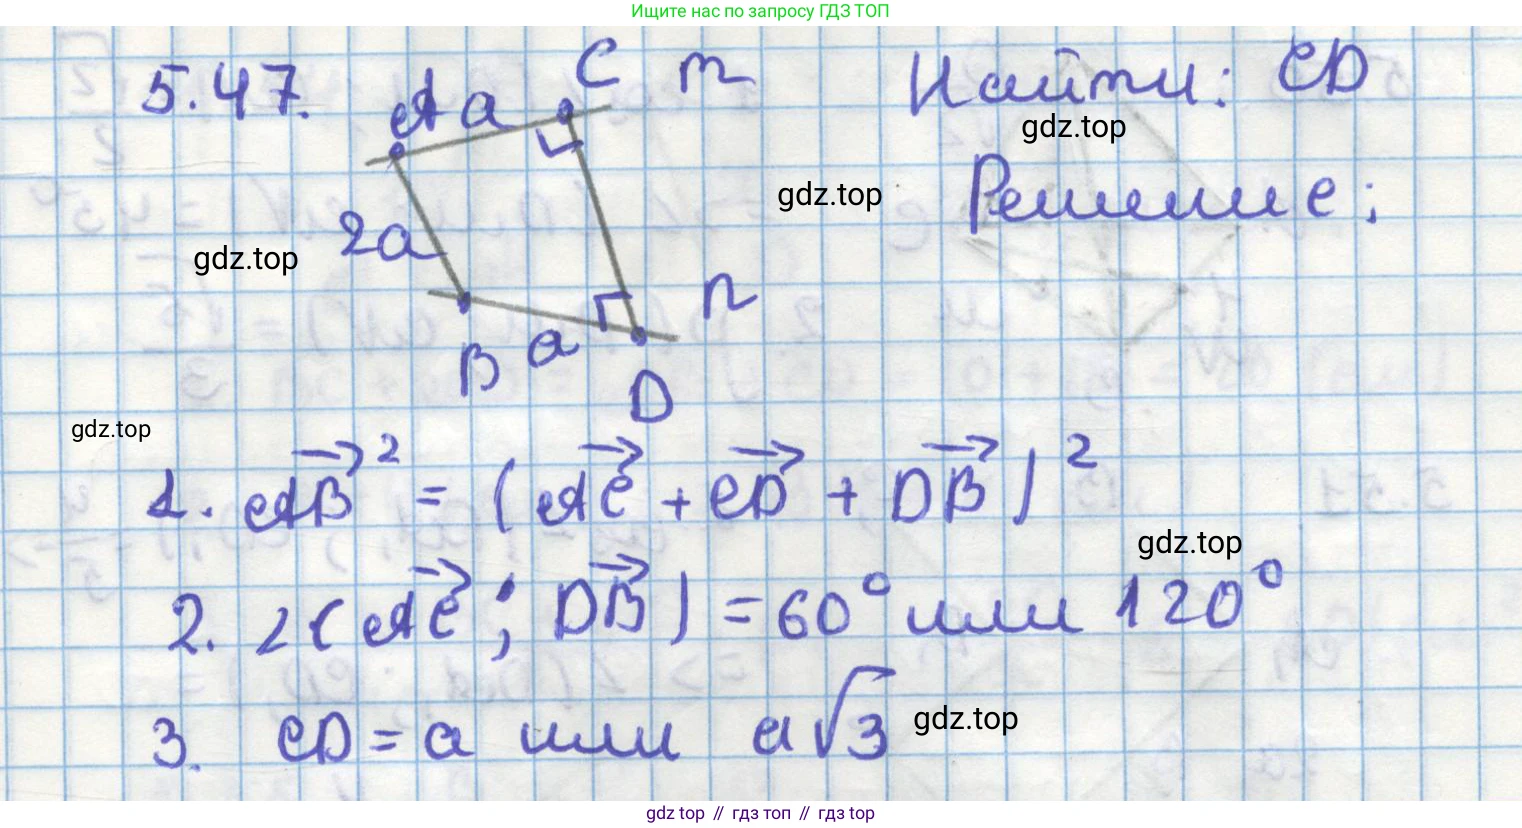 Ищите нас по запросу ГДЗ ТОП
5.47.
A a C m
Найти: CD
gdz.top
gdz.top
Решение:
2a
gdz.top
n
B a
D
gdz.top
1. AB² = (AC + CD + DB)²
gdz.top
2. ∠(AC; DB) = 60° или 120°
3. CD = a или a√3
gdz.top
gdz.top // гдз топ // гдз top